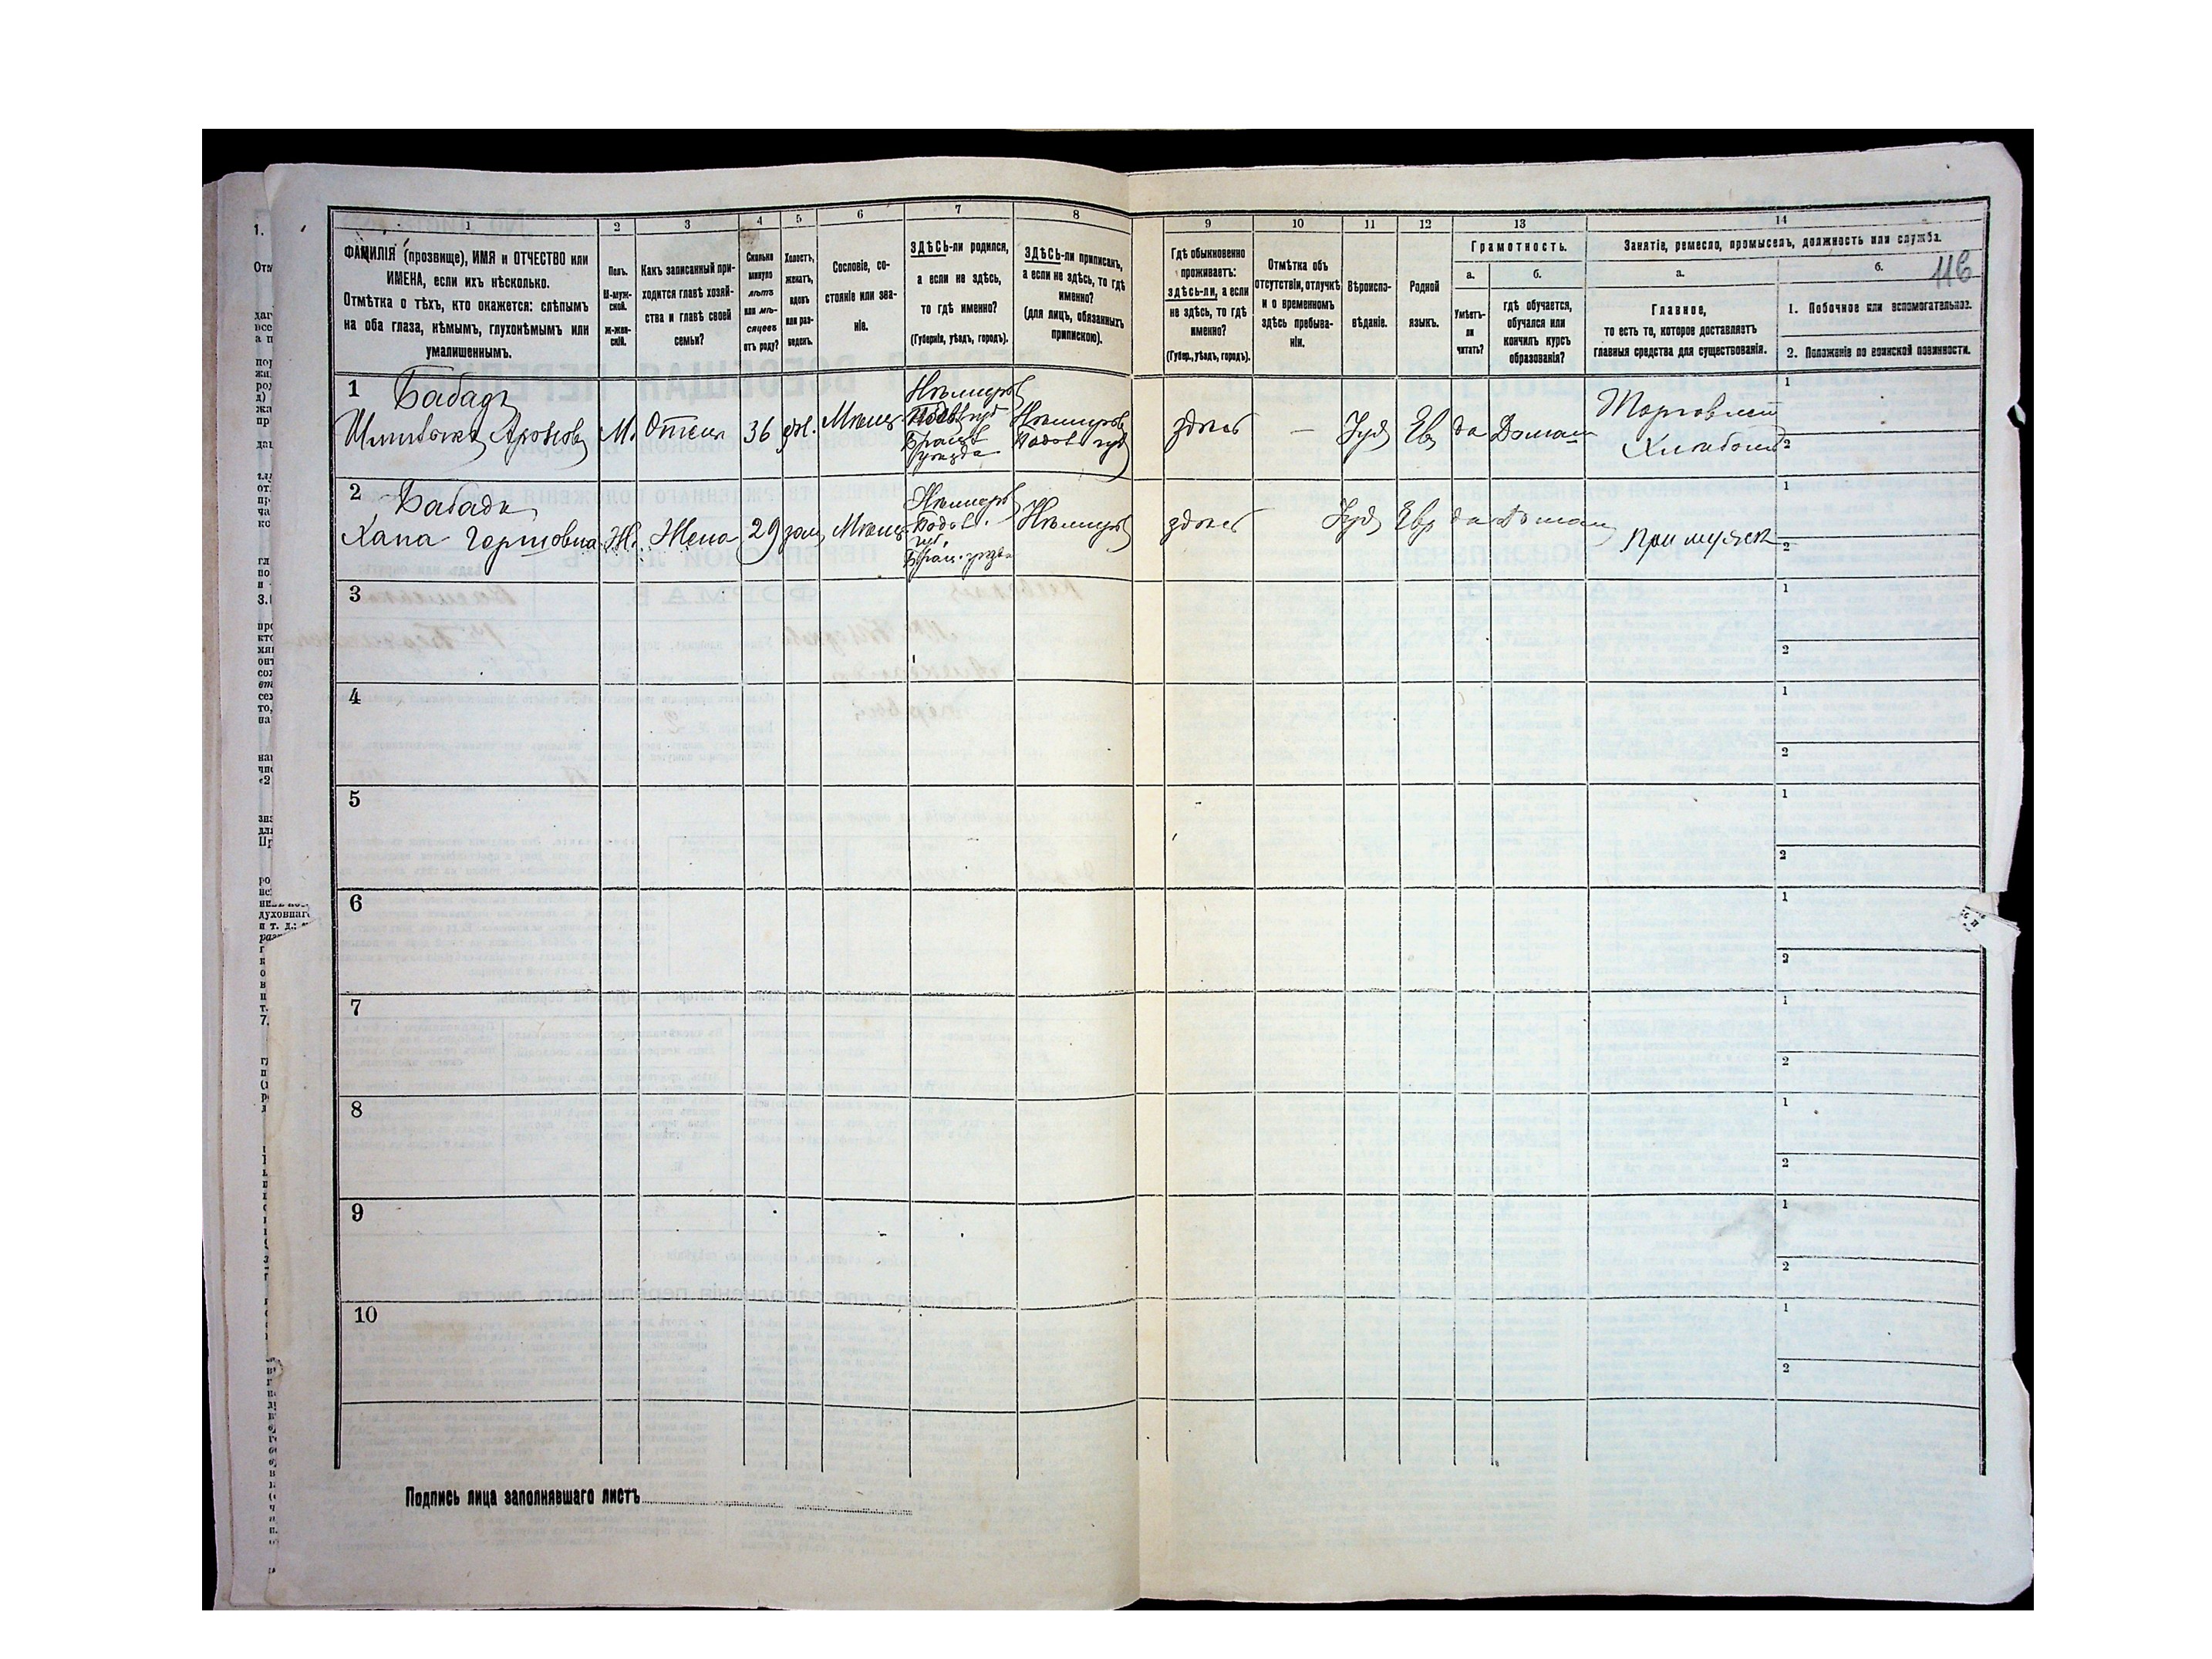 1 2 3 4 5 6 7 8 9 10 11 12 13 14
ФАМИЛІЯ (прозвище), ИМЯ и ОТЧЕСТВО или
ИМЕНА, если ихъ нѣсколько.
Отмѣтка о тѣхъ, кто окажется: слѣпымъ
на оба глаза, нѣмымъ, глухонѣмымъ или
умалишеннымъ.
Полъ.
М-муж-
ской.
Ж-жен-
скій.
Какъ записанный при-
ходится главѣ хозяй-
ства и главѣ своей
семьи?
Сколько
минуло
лѣтъ
или мѣ-
сяцевъ
отъ роду?
Холостъ,
женатъ,
вдовъ
или раз-
веденъ.
Сословіе, со-
стояніе или зва-
ніе.
ЗДѢСЬ-ли родился,
а если не здѣсь,
то гдѣ именно?
(Губернія, уѣздъ, городъ).
ЗДѢСЬ-ли приписанъ,
а если не здѣсь, то гдѣ
именно?
(для лицъ, обязанныхъ
припискою).
Гдѣ обыкновенно
проживаетъ:
здѣсь-ли, а если
не здѣсь, то гдѣ
именно?
(Губер., уѣздъ, городъ).
Отмѣтка объ
отсутствіи, отлучкѣ
и о временномъ
здѣсь пребыва-
ніи.
Вѣроиспо-
вѣданіе.
Родной
языкъ.
Грамотность.
а.
Умѣетъ-
ли
читать?
б.
гдѣ обучается,
обучался или
кончилъ курсъ
образованія?
Занятіе, ремесло, промыселъ, должность или служба.
а.
Главное,
то есть то, которое доставляетъ
главныя средства для существованія.
б.
116
1. Побочное или вспомогательное.
2. Положеніе по воинской повинности.
1
Бабадъ
Аронов
М.
Отец
36
жн.
Мѣщ.
Немиров
Подол губ
Брацл
уѣзда
Немиров
Подол губ
здѣсь
—
Іуд
Ев
да
Домаш
Торговлей
Хлѣбом
1
2
2
Бабадъ
Хана Гершовна
Ж.
Жена
29
зам
Мѣщ
Немиров
Подол.
губ.
Брац. уѣзда
Немиров
здѣсь
Іуд
Евр
да
Домаш
При мужѣ
1
2
3
1
2
4
1
2
5
1
2
6
1
2
7
1
2
8
1
2
9
1
2
10
1
2
Подпись лица заполнявшаго листъ